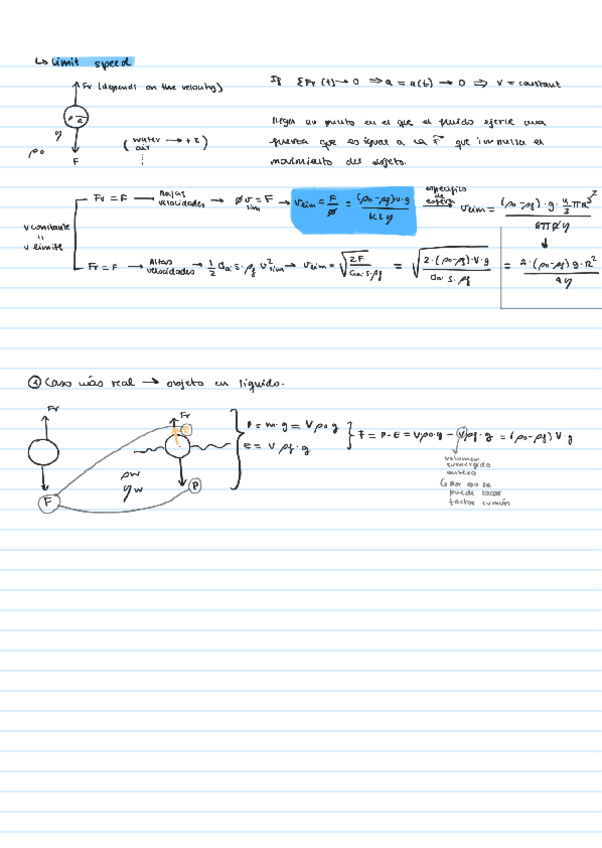 ↳ Limit speed
Fr (depends on the velocity)
If ΣFr (t) → 0 ⇒ a = a(t) → 0 ⇒ v = constant
F
ρo
η
(water → + E)
air
⋮
llega un punto en el que el fluido ejerce una
fuerza que es igual a la F que impulsa el
movimiento del objeto.
v constante
"
v limite
Fr = F — Bajas velocidades → φ v lim = F → vlim = F/φ = (ρo-ρf)v·g / K L η
específico de esfera → vlim = (ρo-ρf)·g·4/3 π R³ / 6π R η
Fr = F → Altas velocidades → 1/2 Ca·s·ρf v²lim → vlim = √(2F / Ca·s·ρf) = √(2·(ρo-ρf)·V·g / Ca·s·ρf)
= 2·(ρo-ρf) g·R² / 9η
① Caso más real → objeto en líquido.
Fr
F
Fr
E
P
ρw
ηw
P = m·g = V ρo g
E = V ρf·g
F = P-E = Vρo·g - Vρf·g = (ρo-ρf) V g
volumen
sumergido
entero
↳ por eso se
puede sacar
factor común